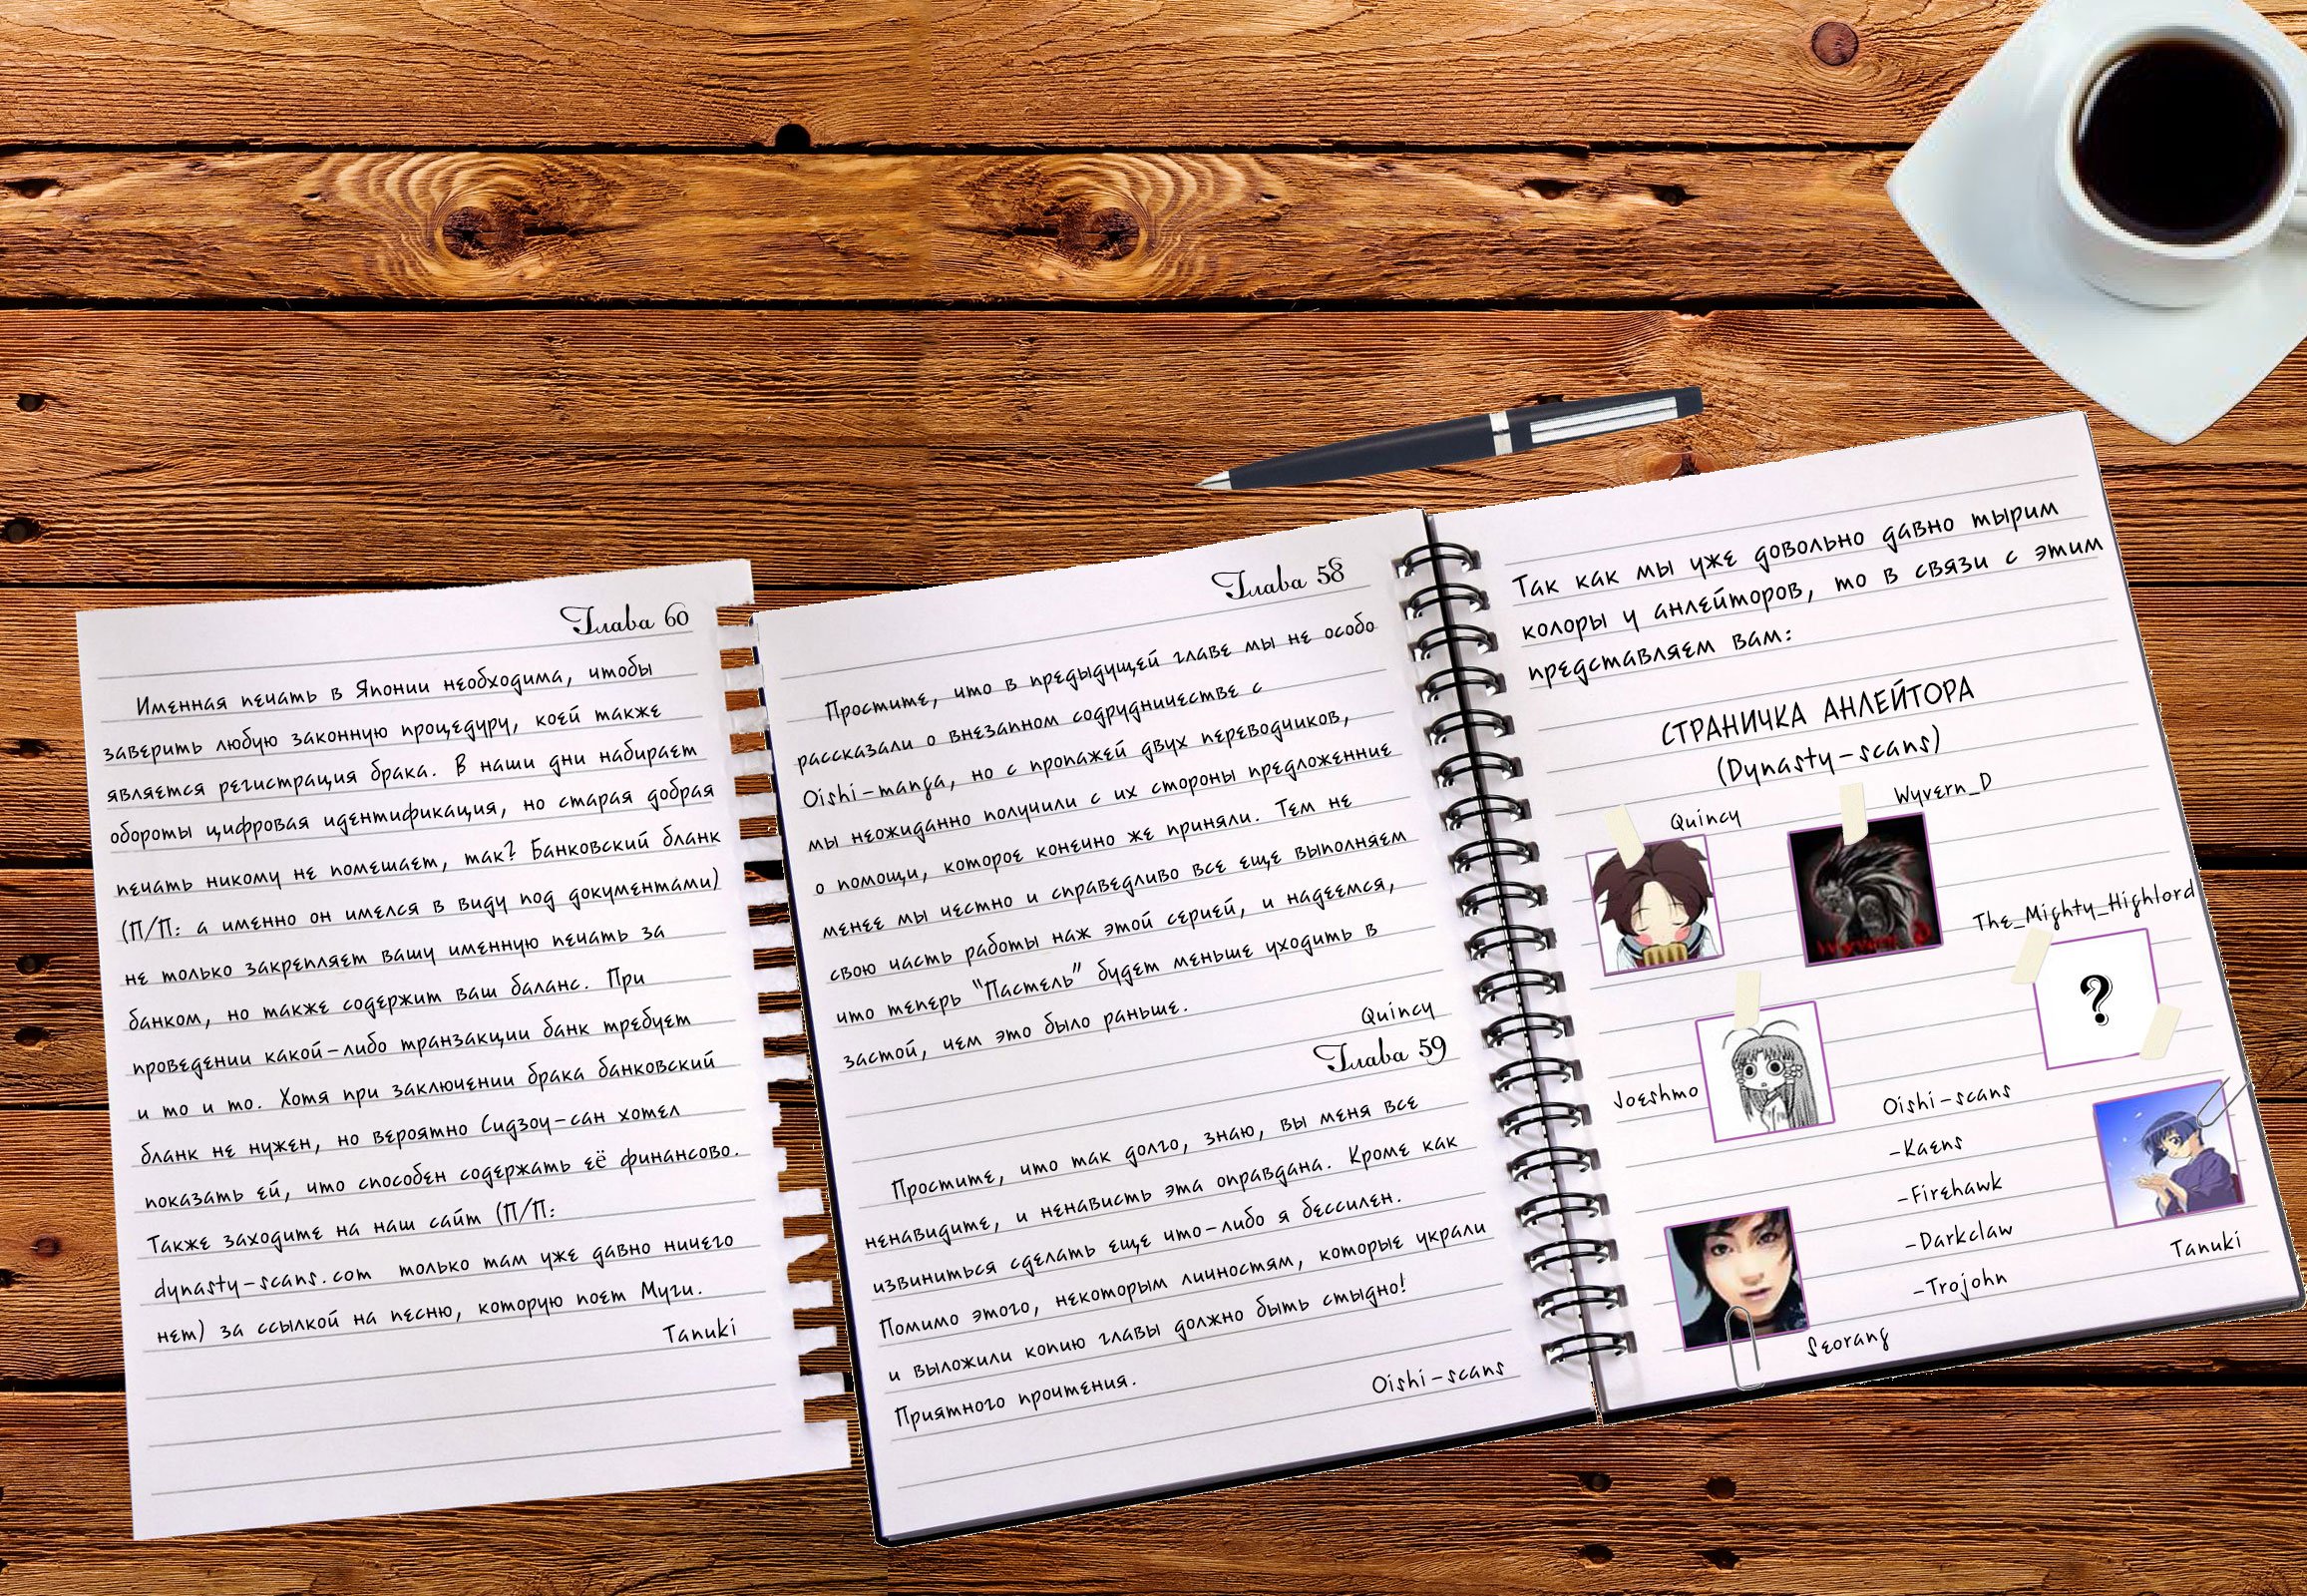 Глава 60
Именная печать в Японии необходима, чтобы
заверить любую законную процедуру, коей также
является регистрация брака. В наши дни набирает
обороты цифровая идентификация, но старая добрая
печать никому не помешает, так? Банковский бланк
(П/П: а именно он имелся в виду под документами)
не только закрепляет вашу именную печать за
банком, но также содержит ваш баланс. При
проведении какой-либо транзакции банк требует
и то и то. Хотя при заключении брака банковский
бланк не нужен, но вероятно Сидзоу-сан хотел
показать ей, что способен содержать её финансово.
Также заходите на наш сайт (П/П:
dynasty-scans.com только там уже давно ничего
нет) за ссылкой на песню, которую поет Муги.
Tanuki
Глава 58
Простите, что в предыдущей главе мы не особо
рассказали о внезапном содрудничестве с
Oishi-manga, но с пропажей двух переводчиков,
мы неожиданно получили с их стороны предложенние
о помощи, которое конечно же приняли. Тем не
менее мы честно и справедливо все еще выполняем
свою часть работы наж этой серией, и надеемся,
что теперь "Пастель" будет меньше уходить в
застой, чем это было раньше.
Quincy
Глава 59
Простите, что так долго, знаю, вы меня все
ненавидите, и ненависть эта оправдана. Кроме как
извиниться сделать еще что-либо я бессилен.
Помимо этого, некоторым личностям, которые украли
и выложили копию главы должно быть стыдно!
Приятного прочтения.
Oishi-scans
Так как мы уже довольно давно тырим
колоры у анлейторов, то в связи с этим
представляем вам:
СТРАНИЧКА АНЛЕЙТОРА
(Dynasty-scans)
Quincy
Wyvern_D
The_Mighty_Highlord
?
Joeshmo
Oishi-scans
-Kaens
-Firehawk
-Darkclaw
-Trojohn
Tanuki
Seorang